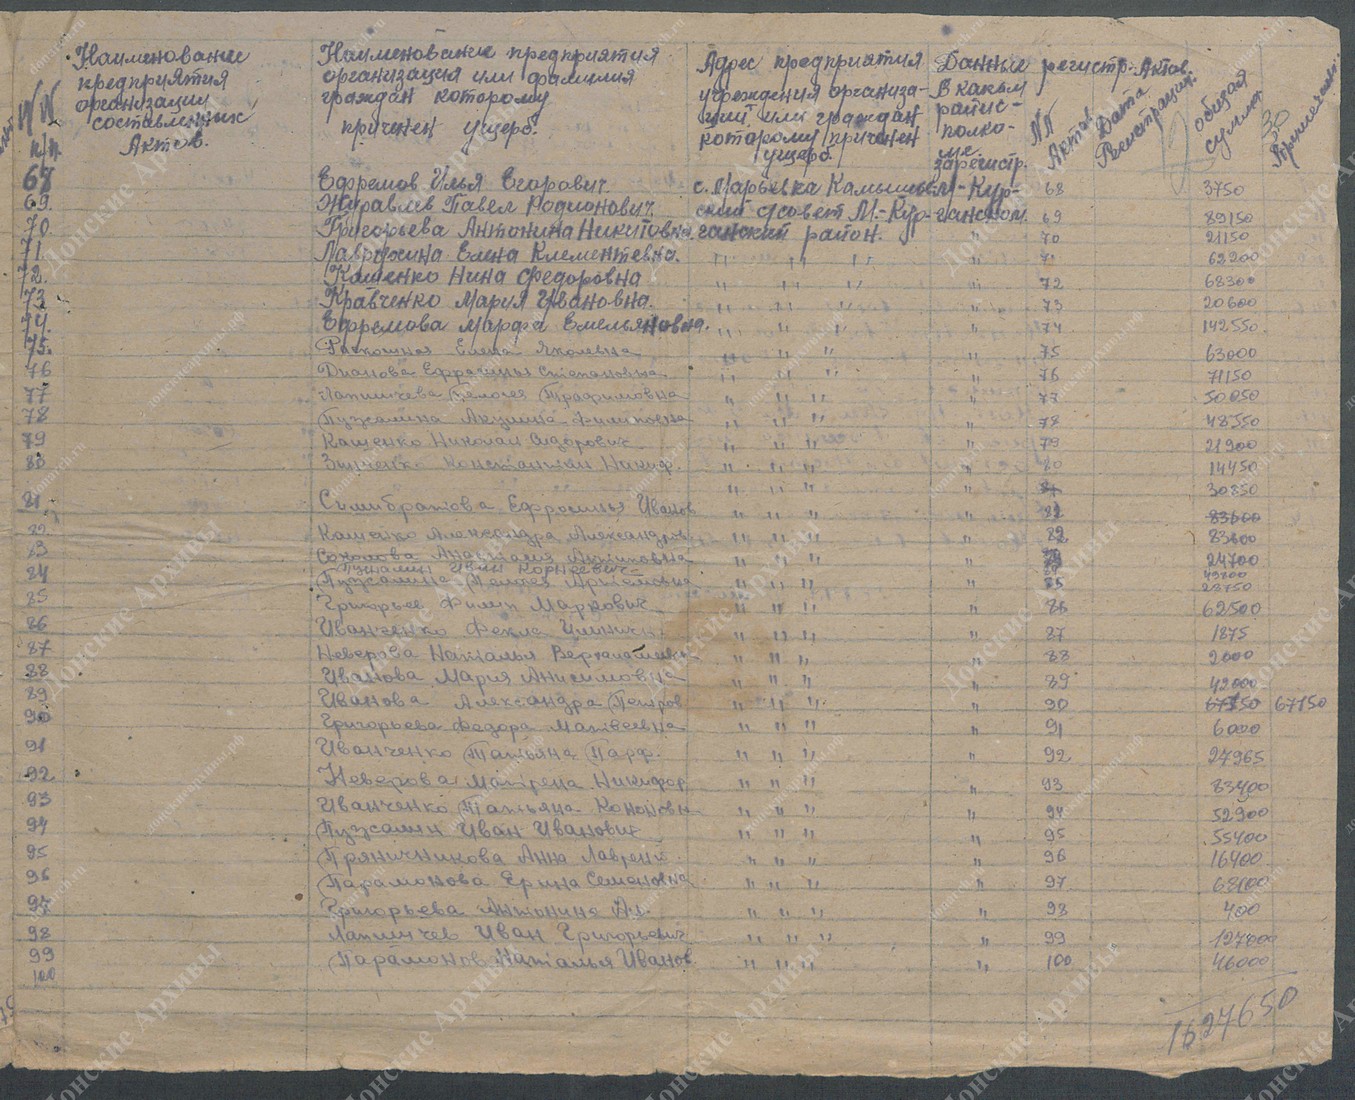 Наименование предприятия организации составленных Актов.
Наименование предприятия организация или фамилия граждан которому причинен ущерб.
Адрес предприятия учреждения организации, или граждан которому причинен ущерб.
Данные регистр. Актов.
В каком райисполкоме зарегистр.
№№ Актов
Дата Регистрации
общая сумма
30
Примечание
№№ п/п.
68 Ефремов Илья Егорович. с. Марьевка Камышев- М-Кур- 68 3750
69. Журавлев Павел Родионович ский с/совет М.-Кур- ганском. 69 89150
70 Григорьева Антонина Никитовна. ганский район. " 70 21150
71 Лаврухина Елена Клементевна. " " " " 71 62200
72. Кашенко Нина Федоровна " " " " 72 68300
73 Кравченко Мария Ивановна. " " " " 73 20600
74. Ефремова Марфа Емельяновна. " " " " 74 142550
75. Елена Яковльвна " " " " 75 63000
76 Дианова Ефросинья Степановна " " " " 76 71150
77 Лапшичева Пелогея Трафимовна " " " " 77 50050
78 Пузжалина Акулина Филиповна " " " " 78 48550
79 Кащенко Николай Сидорович " " " " 79 21900
80 Зинченко Константин Никиф. " " " " 80 14450
" " " " 81 30850
81 Симибратова Ефросинья Иванов " " " " 82 83600
82 Кащенко Александра Александр " " " " 82 83600
83 Соколова Анастасия Антиповна " " " 24700
Пузжалин Иван Корнеевич
84 Пузжалина Пелогея Артёмовна " " " " 85 28750
85 Григорьев Филип Маркович " " " " 86 62500
86 Иванченко Фекла " " " " 87 1875
87 Неверова Наталья " " " " 88 2000
88 Иванова Мария Анисимовна " " " " 89 42000
89 Иванова Александра Петров " " " " 90 67150 67150
90 Григорьева Федора Матвеевна " " " " 91 6000
91 Иванченко Татьяна Парф. " " " " 92 27965
92 Неверова Матрена Никифор " " " " 93 83400
93 Иванченко Татьяна Кононовн " " " " 94 52900
94 Пузжалин Иван Иванович " " " " 95 55400
95 Пряничникова Анна Лаврент. " " " " 96 16400
96 Парамонова Ерина Семеновна " " " " 97 68100
97 Григорьева Антонина Ан. " " " " 98 400
98 Лапшичев Иван Григорьевич " " " " 99 127000
99 Парамонов Наталья Иванов. " " " " 100 46000
100
1627650